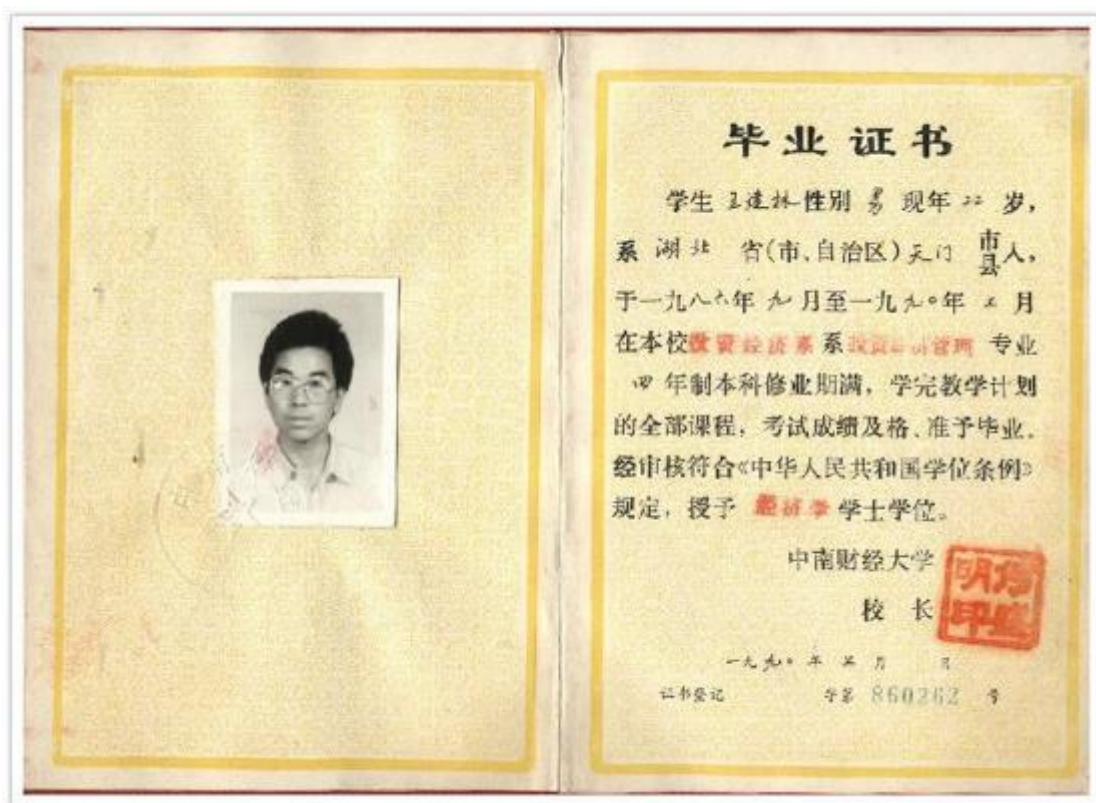 毕业证书
学生 王建林 性别 男 现年 二二 岁，
系 湖北 省(市、自治区) 天门 市县人，
于一九八六年 九 月至一九九〇年 月
在本校投资经济系系投资经济管理 专业
四 年制本科修业期满，学完教学计划
的全部课程，考试成绩及格、准予毕业。
经审核符合《中华人民共和国学位条例》
规定，授予 经济学 学士学位。
中南财经大学
校 长
一九九〇 年 月 日
证书登记 字第 860262 号